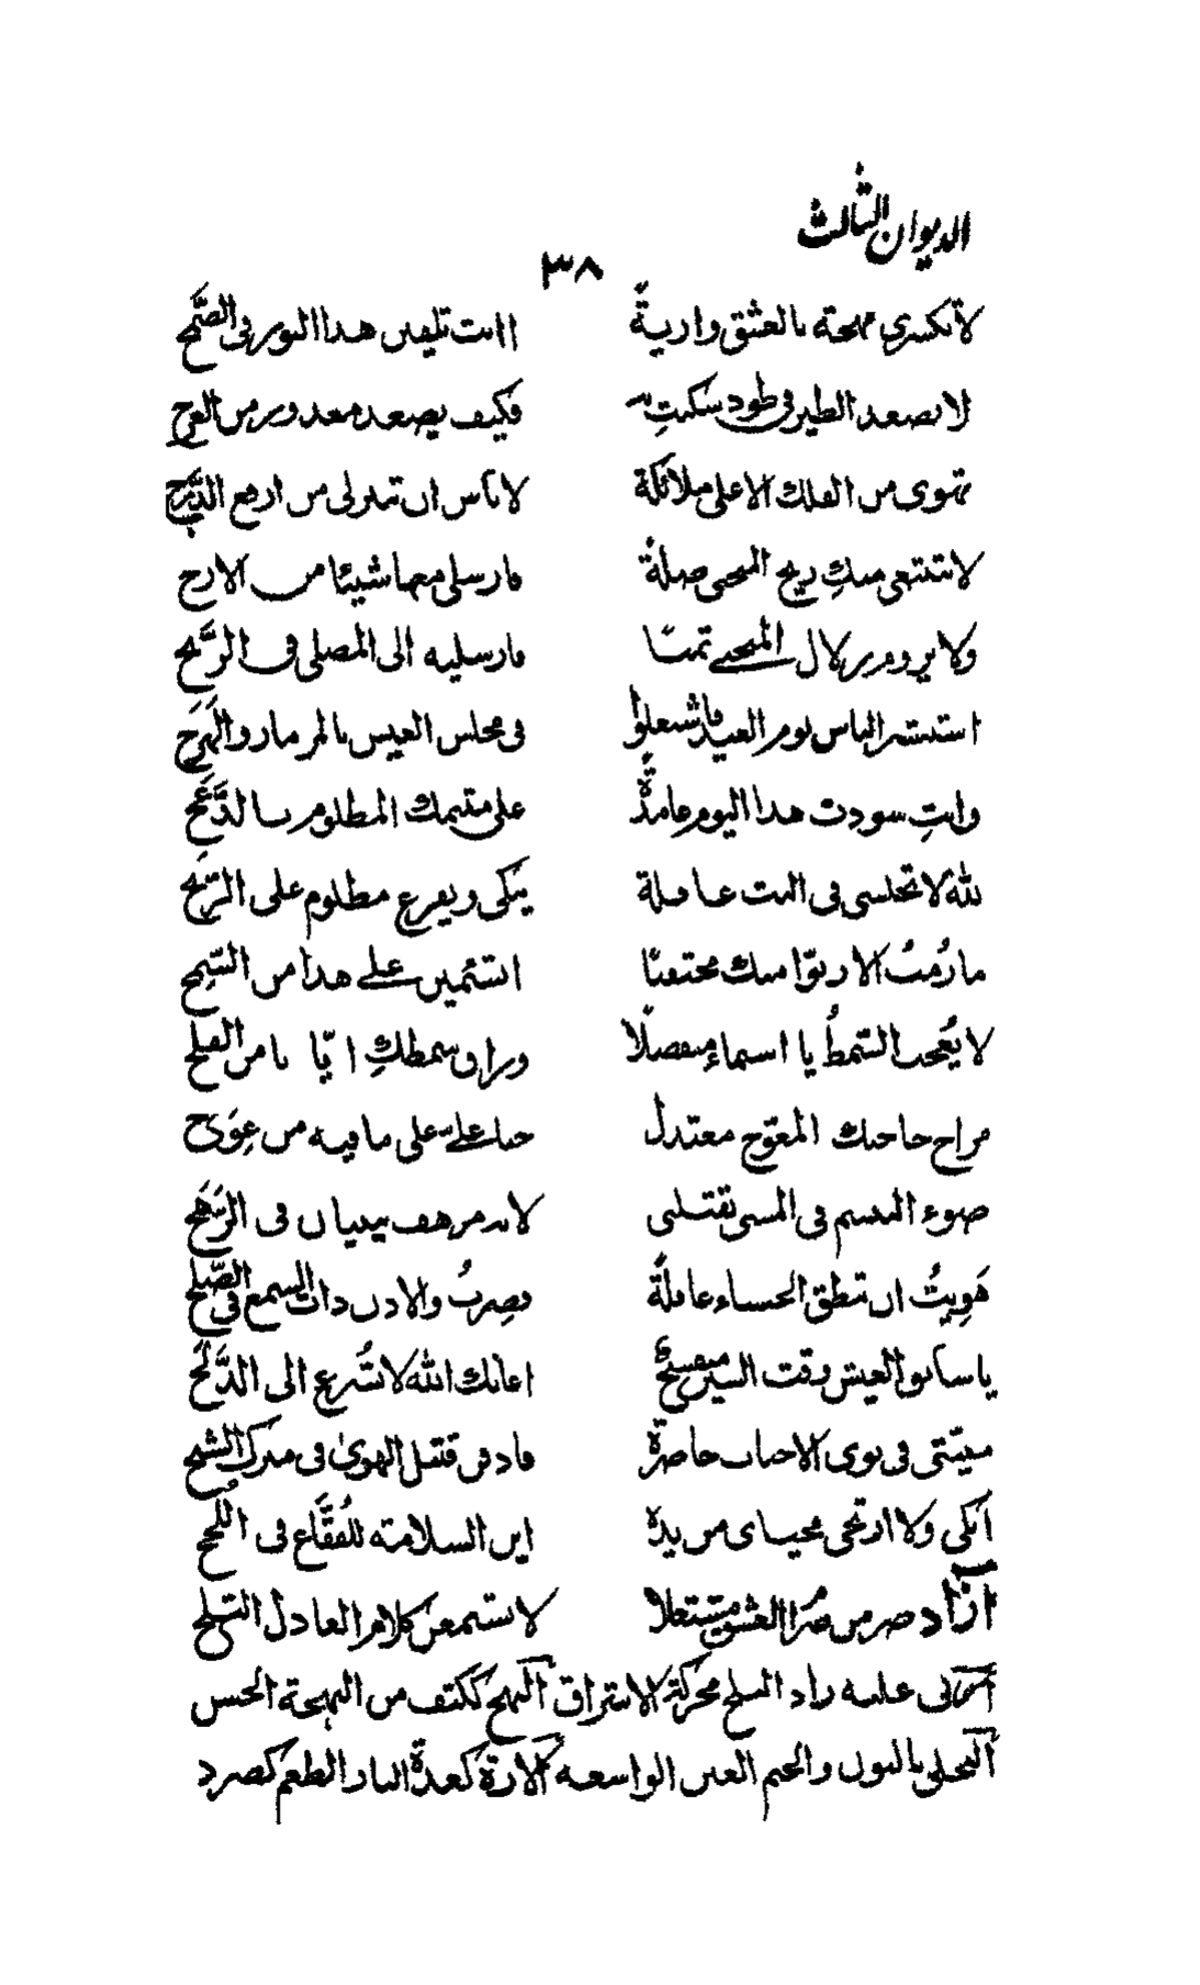 الديوان الثالث
٣٨
لا تكسري مهجة بالعشق وارية أانت تلقين هذا النور في الصمج
لا يصعد الطير في طود سكنت به فكيف يصعد معذور من العرج
تهوى من الفلك الاعلى ملائكة لا باس ان تنزلي من ارفع الدرج
لا تنتهي منك ريح صلة فارسلي معها شيئا من الارج
ولا يروم زلال تمتا فارسليه الى المصلى في الرنج
استبشر الناس يوم العيد فاشعلوا في مجلس العيش بالمزمار والهزج
وانت سودت هذا اليوم عامدة على متيمك المظلوم بالدعج
لله لا تجلسي في البيت غافلة يبكي ويقرع مظلوم على الرتج
ما رمت الا رنوا منك مختفيا استئمين على هذا من السبج
لا يعجب السمط يا اسماء منفصلا وراق سمطك ايا بامن الفلج
مزاج حاجبك المعوج معتدل حناك على ما فيه من عوج
ضوء المبسم في المسى يقتلني لابد مرهف بيديان في الرهج
هويت ان تنطق الحسناء عاذلة فصرت والاذن ذات السمع في الصلج
يا سائق العيش وقت السير منفسح اعانك الله لا تسرع الى الدلج
ميتتي في نوى الاحباب حاضرة فاذن قتل الهوى في مترك الشبج
ابكي ولا ارتجي محياى من يده اين السلامة للفقاع في اللجج
آزاد صر من ضرا العشق مشتعلا لا تستمعن كلام العاذل السلج
عليه زاد محركة الاشراق البهج ككتف من البهجة الحسن
النجلى بالنون والجيم العين الواسعة الارة كعدة النار الطعم كصرد